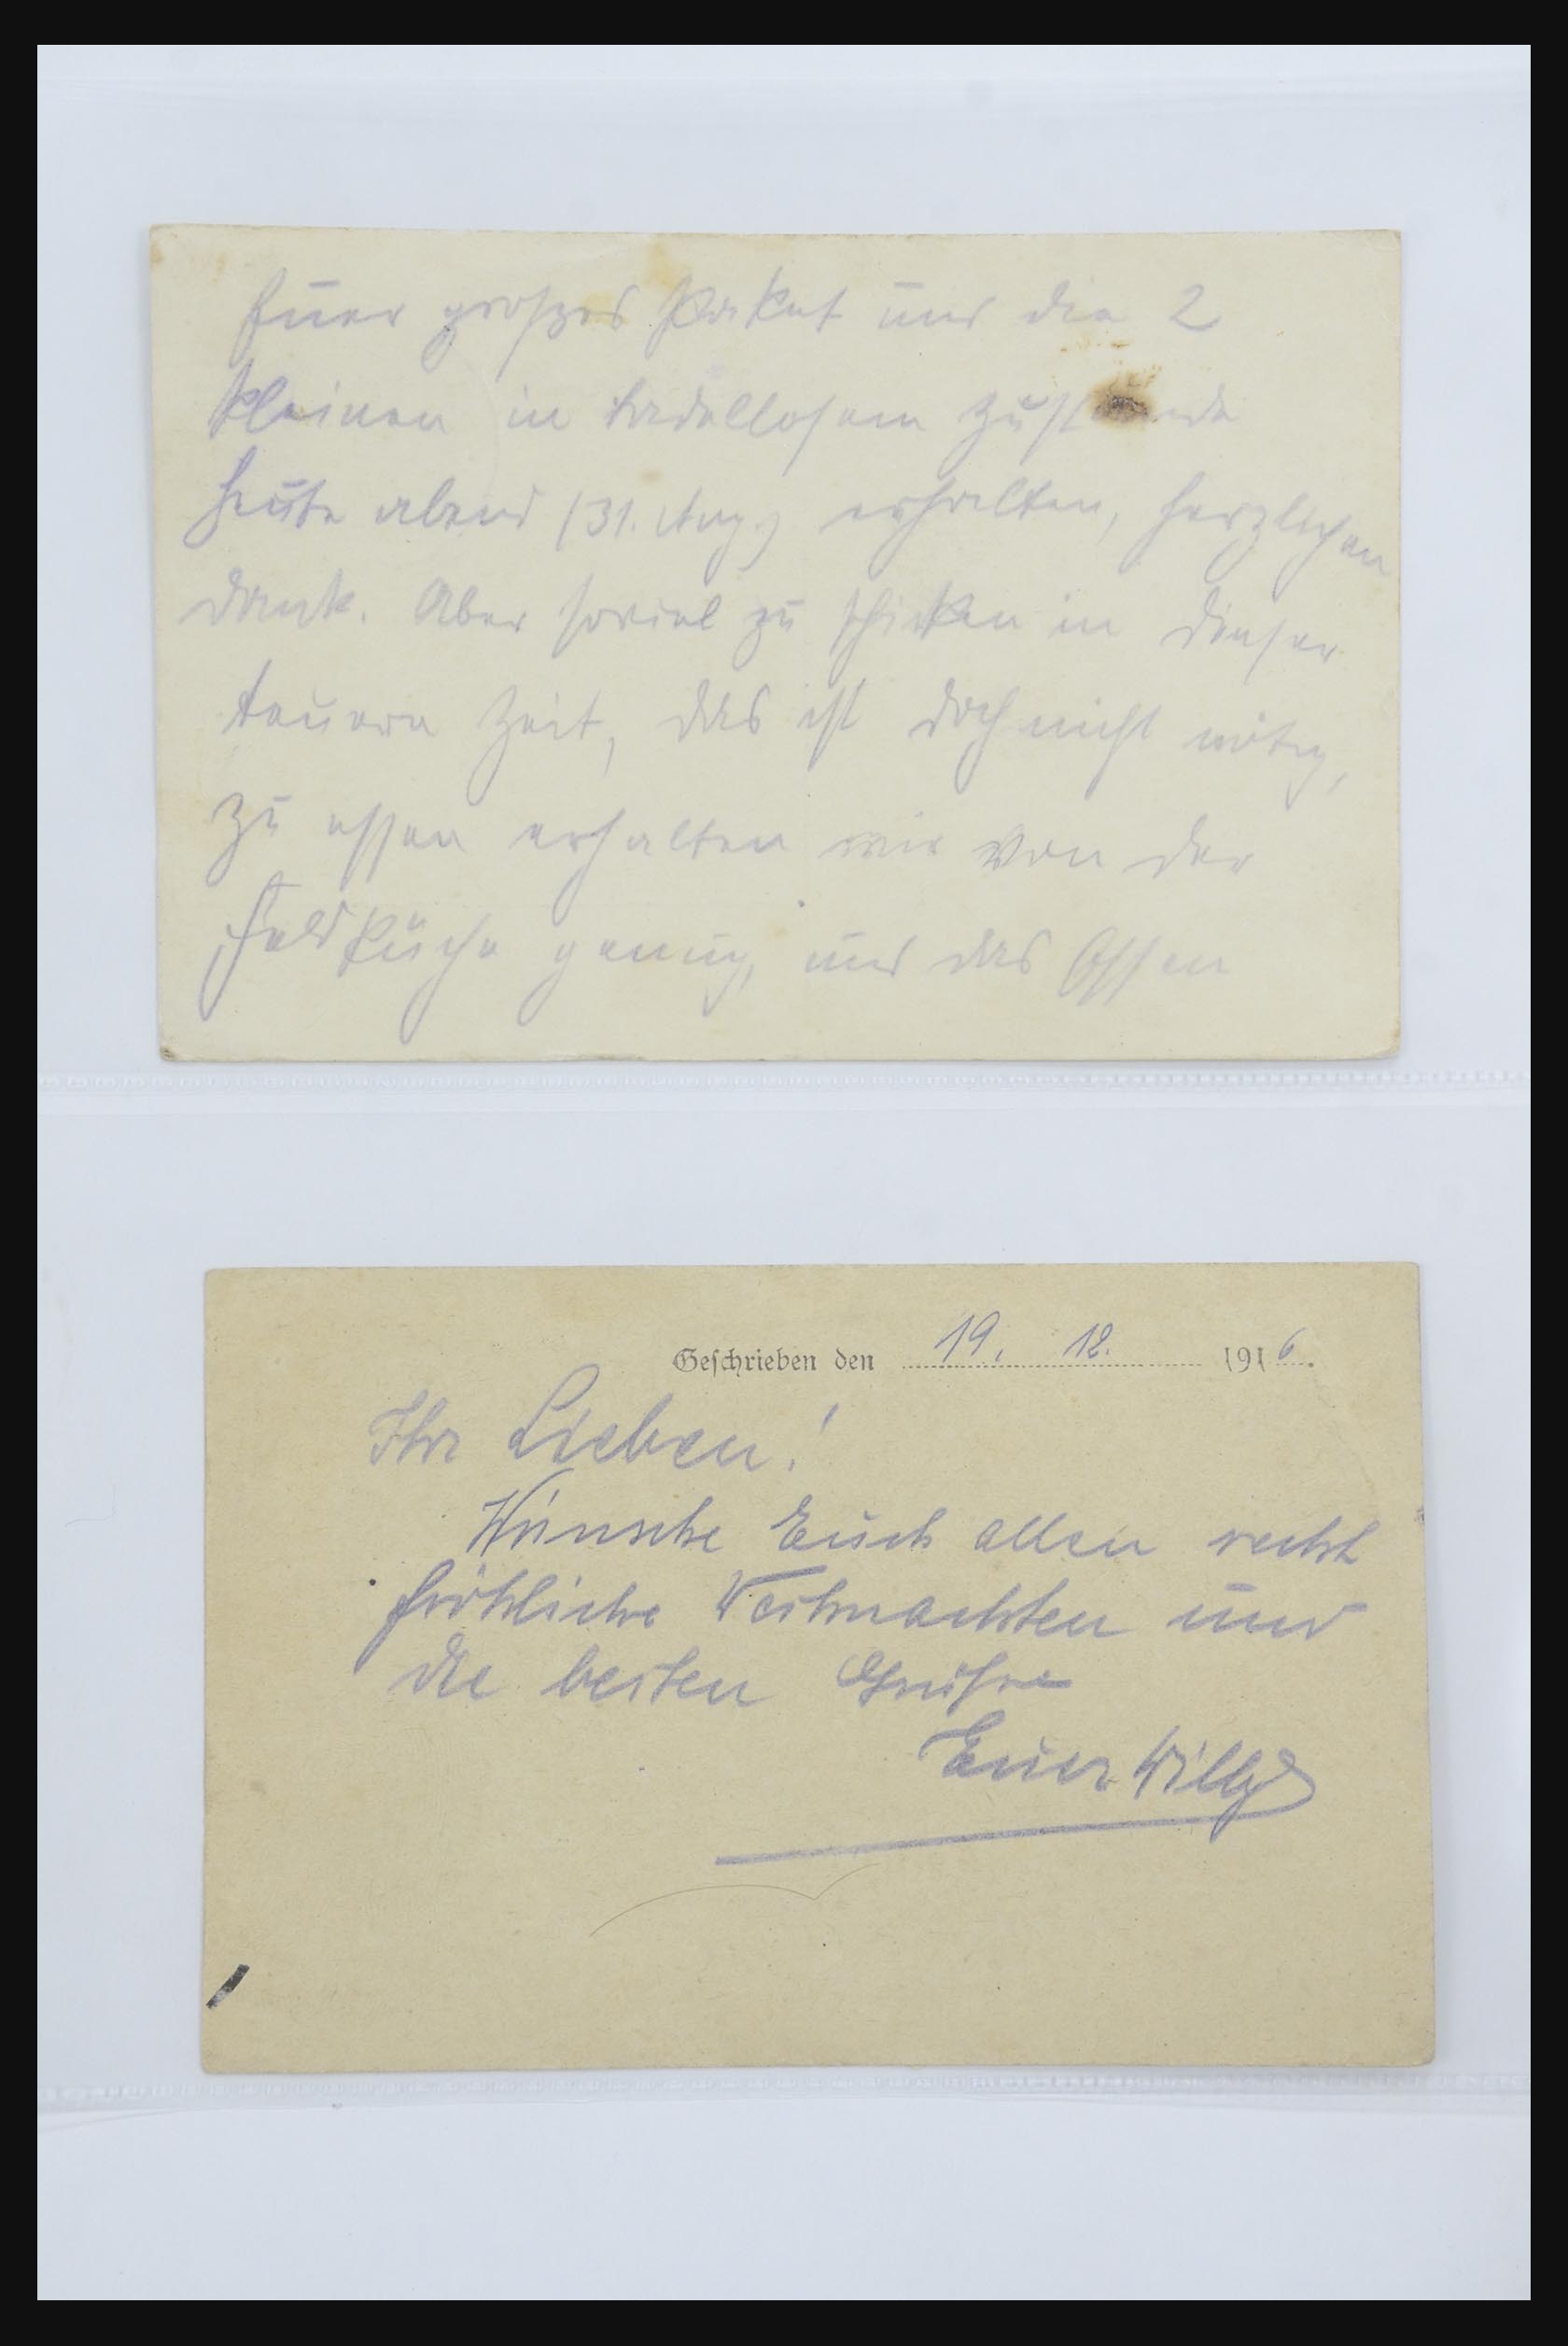 Euer großes Paket und die 2
kleinen in tadellosem Zustande
heute abend (31. Aug.) erhalten, herzlichen
Dank. Aber soviel zu schicken in dieser
teuern Zeit, das ist doch nicht nötig,
zu essen erhalten wir von der
Feldküche genug, und das Essen
Geschrieben den 19. 12. 1916.
Ihr Lieben!
Wünsche Euch allen recht
fröhliche Weihnachten und
die besten Grüße
Euer Willy